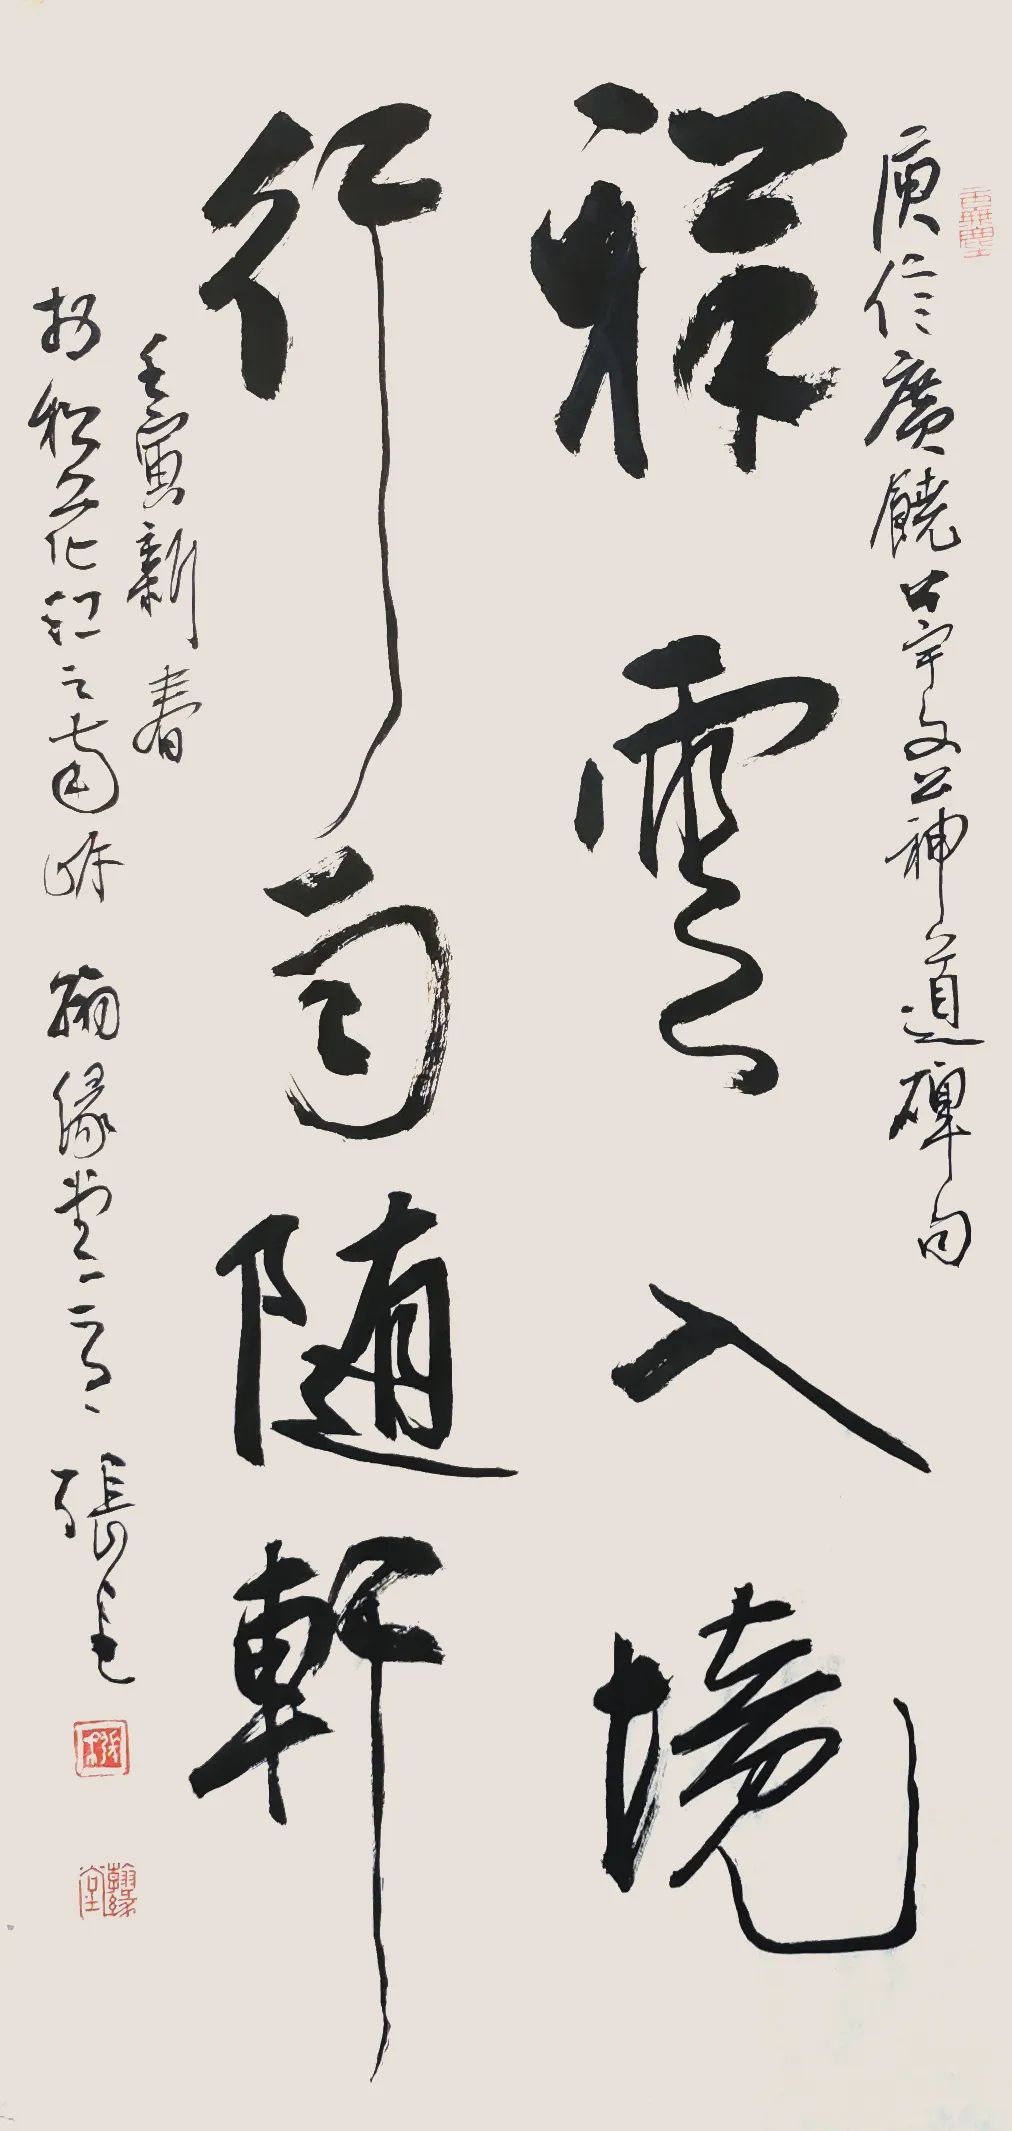 庾信廣饒公宇文公神道碑句
祥雲入境
行雨随軒
壬寅新春
於松花江之南岸 翰緣堂 張
翰緣堂